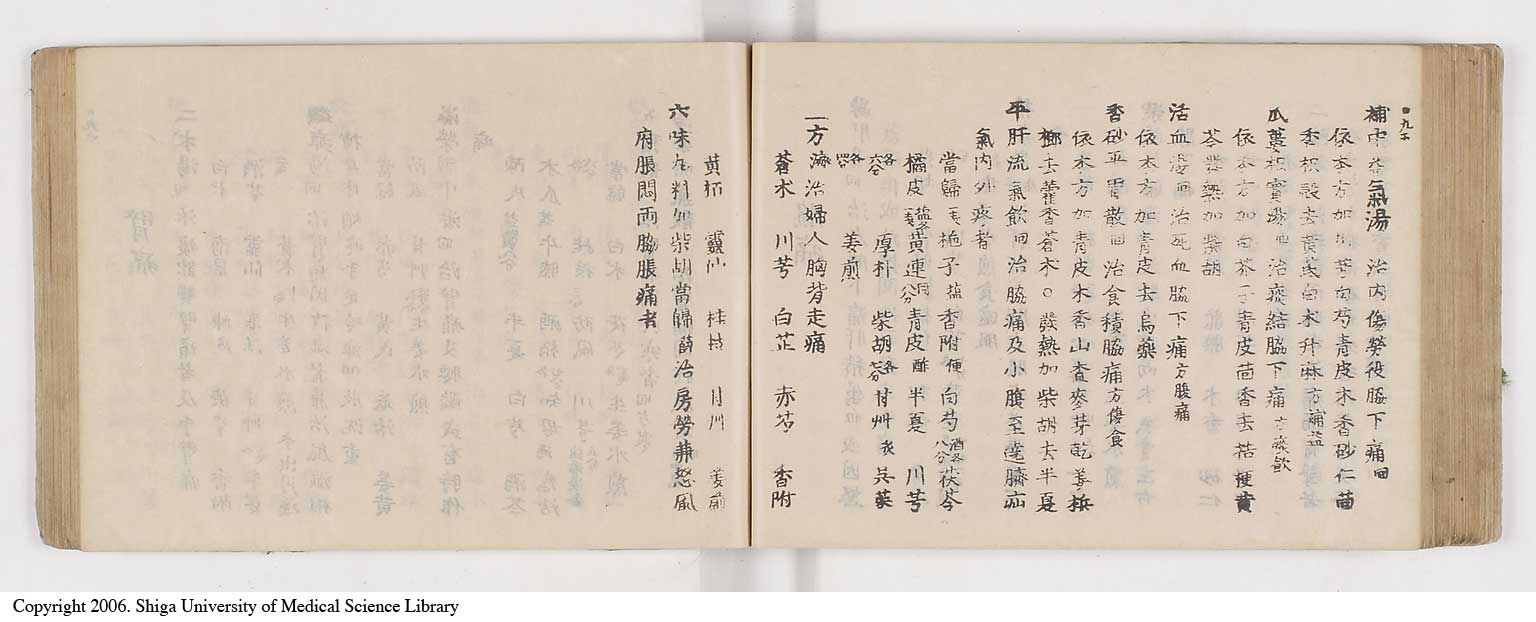 補中益氣湯 治内傷勞役脇下痛回
依本方加川芎白芍青皮木香砂仁茴
香枳殻去黄芪白朮升麻方補益
瓜蔞枳實湯回治痰結脇下痛方痰飲
依本方加白芥子青皮茴香去桔梗黄
芩發熱加柴胡
活血湯回治死血脇下痛方腹痛
依本方加青皮去烏藥
香砂平胃散回治食積脇痛方傷食
依本方加青皮木香山査麥芽乾姜梹
榔去藿香蒼朮〇發熱加柴胡去半夏
平肝流氣飲回治脇痛及小膓至遶臍疝
氣内外疼者
當歸 梔子塩 香附便 白芍酒各八分 茯苓
橘皮塩 黄連同八分 青皮酢 半夏 川芎
厚朴 柴胡 甘艸炙 呉茱
姜煎
一方 治婦人胸背走痛
蒼朮 川芎 白芷 赤芍 香附
黄栢 靈仙 桂枝 甘艸 姜煎
六味丸料加柴胡當歸 治房勞兼怒風
府脹悶両脇脹痛者
Copyright 2006. Shiga University of Medical Science Library